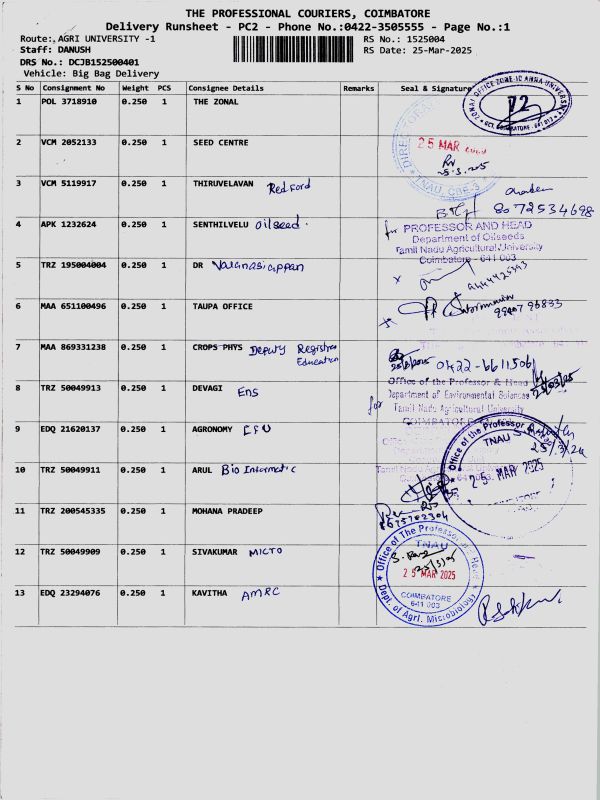 THE PROFESSIONAL COURIERS, COIMBATORE
Delivery Runsheet - PC2 - Phone No.:0422-3505555 - Page No.:1
Route: AGRI UNIVERSITY -1 RS No.: 1525004
Staff: DANUSH RS Date: 25-Mar-2025
DRS No.: DCJB152500401
Vehicle: Big Bag Delivery
S No Consignment No Weight PCS Consignee Details Remarks Seal & Signature
1 POL 3718910 0.250 1 THE ZONAL
2 VCM 2052133 0.250 1 SEED CENTRE
25 MAR
TNAU, CBE-3
3 VCM 5119917 0.250 1 THIRUVELAVAN Redford
8072534698
4 APK 1232624 0.250 1 SENTHILVELU oilseed.
for PROFESSOR AND HEAD
Department of Oilseeds
Tamil Nadu Agricultural University
Coimbatore - 641 003
5 TRZ 195004004 0.250 1 DR
6 MAA 651100496 0.250 1 TAUPA OFFICE
7 MAA 869331238 0.250 1 CROPS PHYS Deputy Registrar
Education
0422-6611506
8 TRZ 50049913 0.250 1 DEVAGI Ens
Office of the Professor & Head
Department of Environmental Sciences
for Tamil Nadu Agricultural University
COIMBATORE
9 EDQ 21620137 0.250 1 AGRONOMY
Office of the Professor
TNAU
25 MAR 2025
10 TRZ 50049911 0.250 1 ARUL Bio Informatic
11 TRZ 200545335 0.250 1 MOHANA PRADEEP
12 TRZ 50049909 0.250 1 SIVAKUMAR MICTO
Office of the Professor and Head
TNAU
25 MAR 2025
COIMBATORE
641 003
Dept. of Agri. Microbiology
13 EDQ 23294076 0.250 1 KAVITHA AMRC